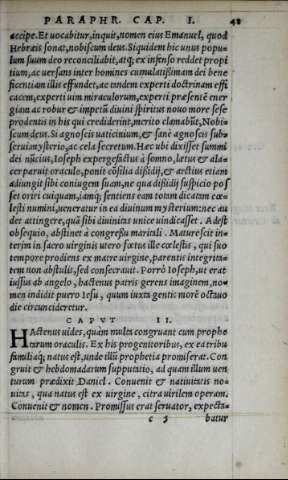 PARAPHR. CAP. I. 41
accipe. Et uocabitur, inquit, nomen eius Emanuel, quod
Hebræis sonat, nobiscum deus. Siquidem hic unus popu-
lum suum deo reconciliabit, atq; ex infenso reddet propi
tium, ac uersans inter homines cumulatißimam dei bene
ficentiam illis effundet, ac tandem experti doctrinam effi
cacem, experti uim miraculorum, experti præsentē ener
giam ac robur & impetū diuini spiritus nouo more sese
prodentis in his qui crediderint, merito clamabūt, Nobi-
scum deus. Si agnoscis uaticinium, & sanè agnoscis sub-
serui mysterio, ac cela secretum. Hæc ubi dixisset summi
dei nūcius, Ioseph expergefactus à somno, lætus & ala-
cer paruit oraculo, ponit cōsilia dissidij, & arctius etiam
adiungit sibi coniugem suam, ne qua dissidij suspicio pos
set oriri cuiquam, iamq; sentiens eam totam dicatam cœ-
lesti numini, ueneratur in ea diuinum mysterium: nec au
det attingere, quā sibi diuinitas unice uindicasset. Adest
obsequio, abstinet à congressu maritali. Maturescit in-
terim in sacro uirginis utero fœtus ille cœlestis, qui suo
tempore prodiens ex matre uirgine, parentis integrita-
tem non abstulit, sed consecrauit. Porrò Ioseph, ut erat
iussus ab angelo, hactenus patris gerens imaginem, no-
men indidit puero Iesu, quum iuxta gentis morē octauo
die circuncideretur.
CAPVT II.
HActenus uides, quàm multa congruant cum prophe
tarum oraculis. Ex his progenitoribus, ex ea tribu
familiaq; natus est, unde illū prophetia promiserat. Con
gruit & hebdomadarum supputatio, ad quam illum uen
turum prædixit Daniel. Conuenit & natiuitatis no-
uitas, qua natus est ex uirgine, citra uirilem operam.
Conuenit & nomen. Promissus erat seruator, expecta-
c 5 batur